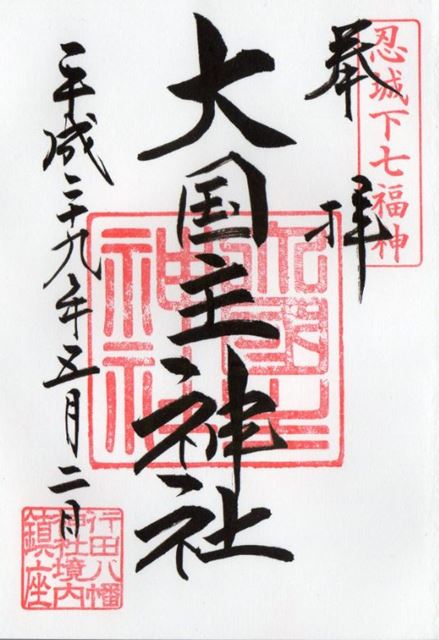 忍城下七福神
奉拝
大国主神社
大國主神社
平成二十九年五月二日
行田八幡
神社境内
鎮座